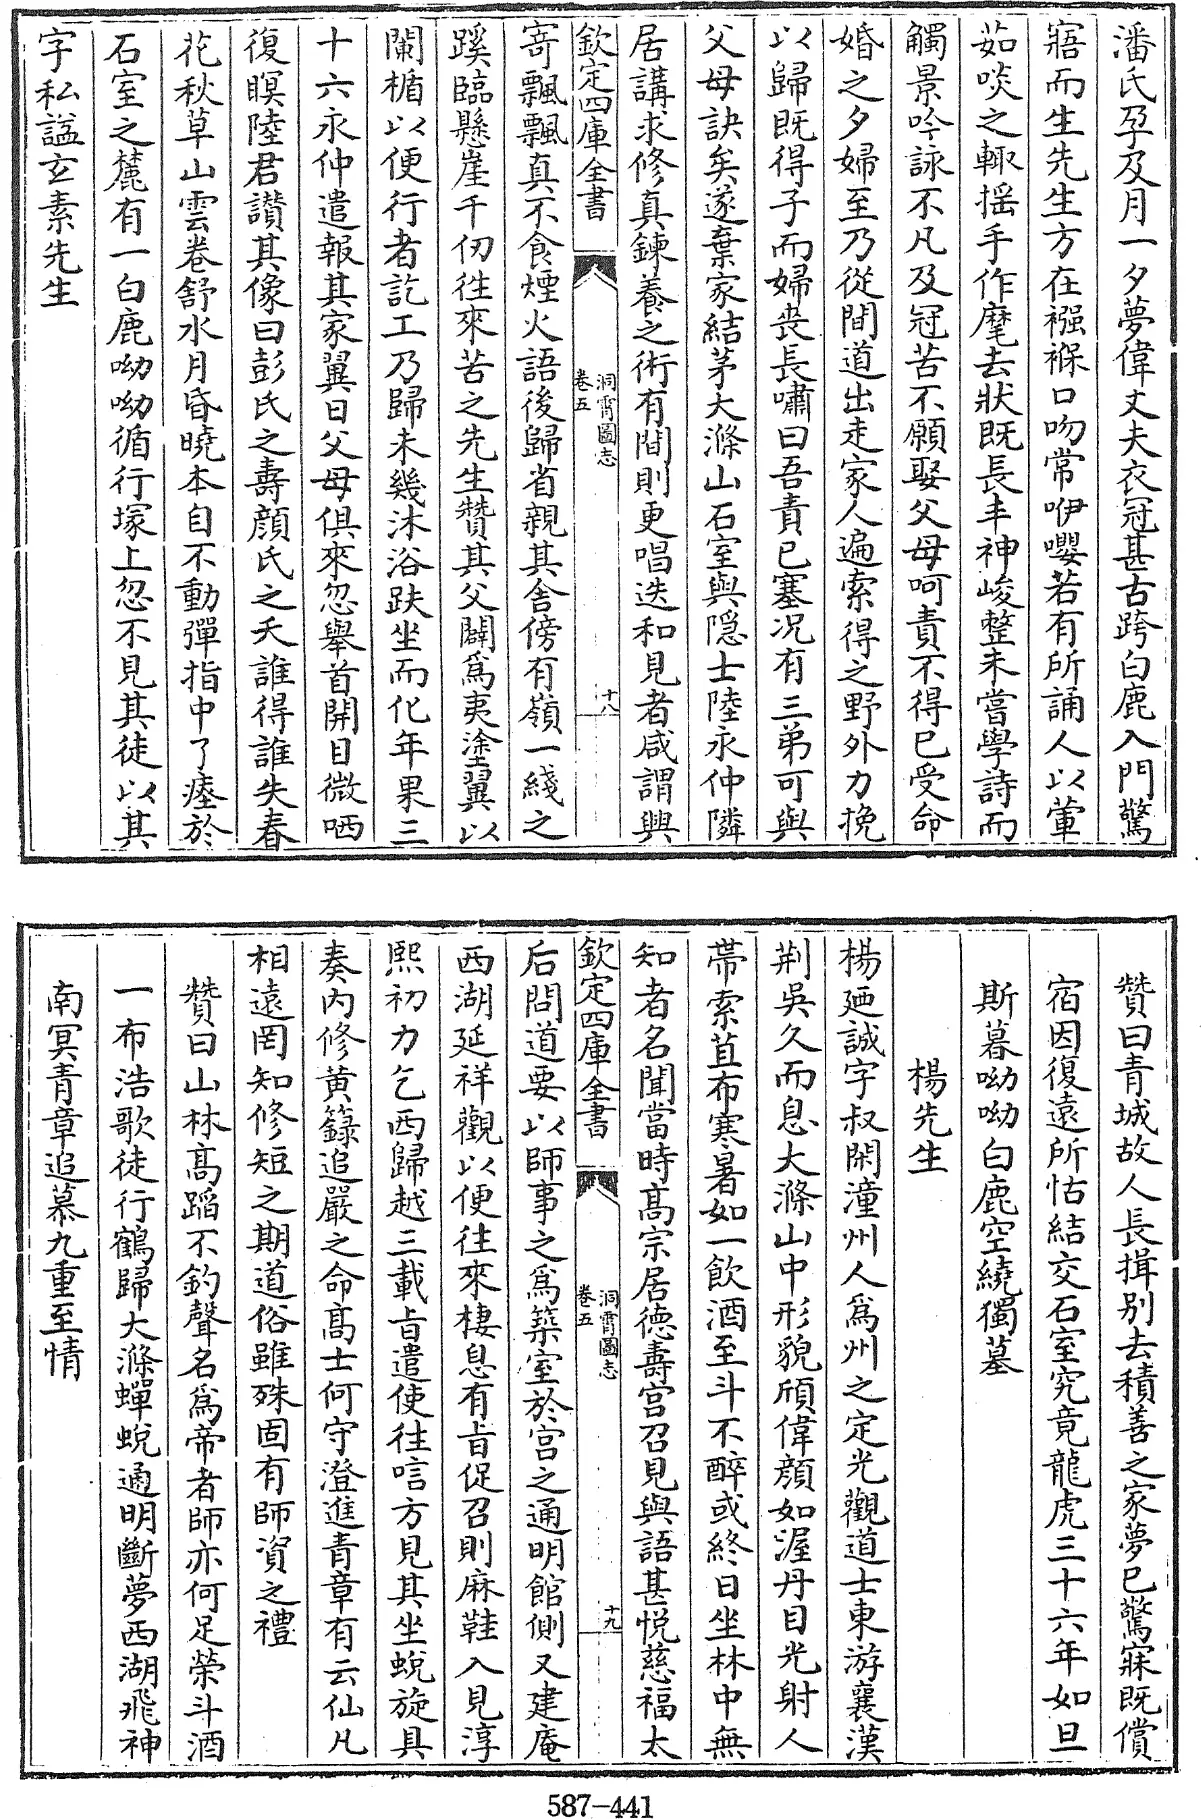 潘氏孕及月一夕夢偉丈夫衣冠甚古跨白鹿入門驚
寤而生先生方在襁褓口吻常咿嚶若有所誦人以葷
茹啖之輙揺手作麾去狀既長丰神峻整未嘗學詩而
觸景吟詠不凡及冠苦不願娶父母呵責不得已受命
婚之夕婦至乃從間道出走家人遍索得之野外力挽
以歸既得子而婦喪長嘯曰吾責已塞况有三弟可與
父母訣矣遂棄家結茅大滌山石室與隠士陸永仲隣
居講求修真鍊養之術有間則更唱迭和見者咸謂興
欽定四庫全書
洞霄圖志
卷五
十八
寄飄飄真不食煙火語後歸省親其舎傍有嶺一綫之
蹊臨懸崖千仞徃來苦之先生贊其父闢為夷塗翼以
闌楯以便行者訖工乃歸未幾沐浴趺坐而化年果三
十六永仲遣報其家翼日父母俱來忽舉首開目微哂
復瞑陸君讃其像曰彭氏之壽顔氏之夭誰得誰失春
花秋草山雲卷舒水月昏曉本自不動彈指中了瘞於
石室之麓有一白鹿呦呦循行塚上忽不見其徒以其
字私諡玄素先生
贊曰青城故人長揖别去積善之家夢已驚寐既償
宿因復遠所怙結交石室究竟龍虎三十六年如旦
斯暮呦呦白鹿空繞獨墓
楊先生
楊廼誠字叔閑潼州人為州之定光觀道士東游襄漢
荆吳久而息大滌山中形貌頎偉顔如渥丹目光射人
帶索苴布寒暑如一飲酒至斗不醉或終日坐林中無
知者名聞當時髙宗居徳壽宫召見與語甚悦慈福太
欽定四庫全書
洞霄圖志
卷五
十九
后問道要以師事之為築室於宫之通明館側又建庵
西湖延祥觀以便徃來棲息有㫖促召則麻鞋入見淳
熙初力乞西歸越三載㫖遣使往唁方見其坐蛻旋具
奏内修黄籙追嚴之命髙士何守澄進青章有云仙凡
相遠罔知修短之期道俗雖殊固有師資之禮
贊曰山林髙蹈不釣聲名為帝者師亦何足榮斗酒
一布浩歌徒行鶴歸大滌蟬蛻通明斷夢西湖飛神
南冥青章追慕九重至情
587-441